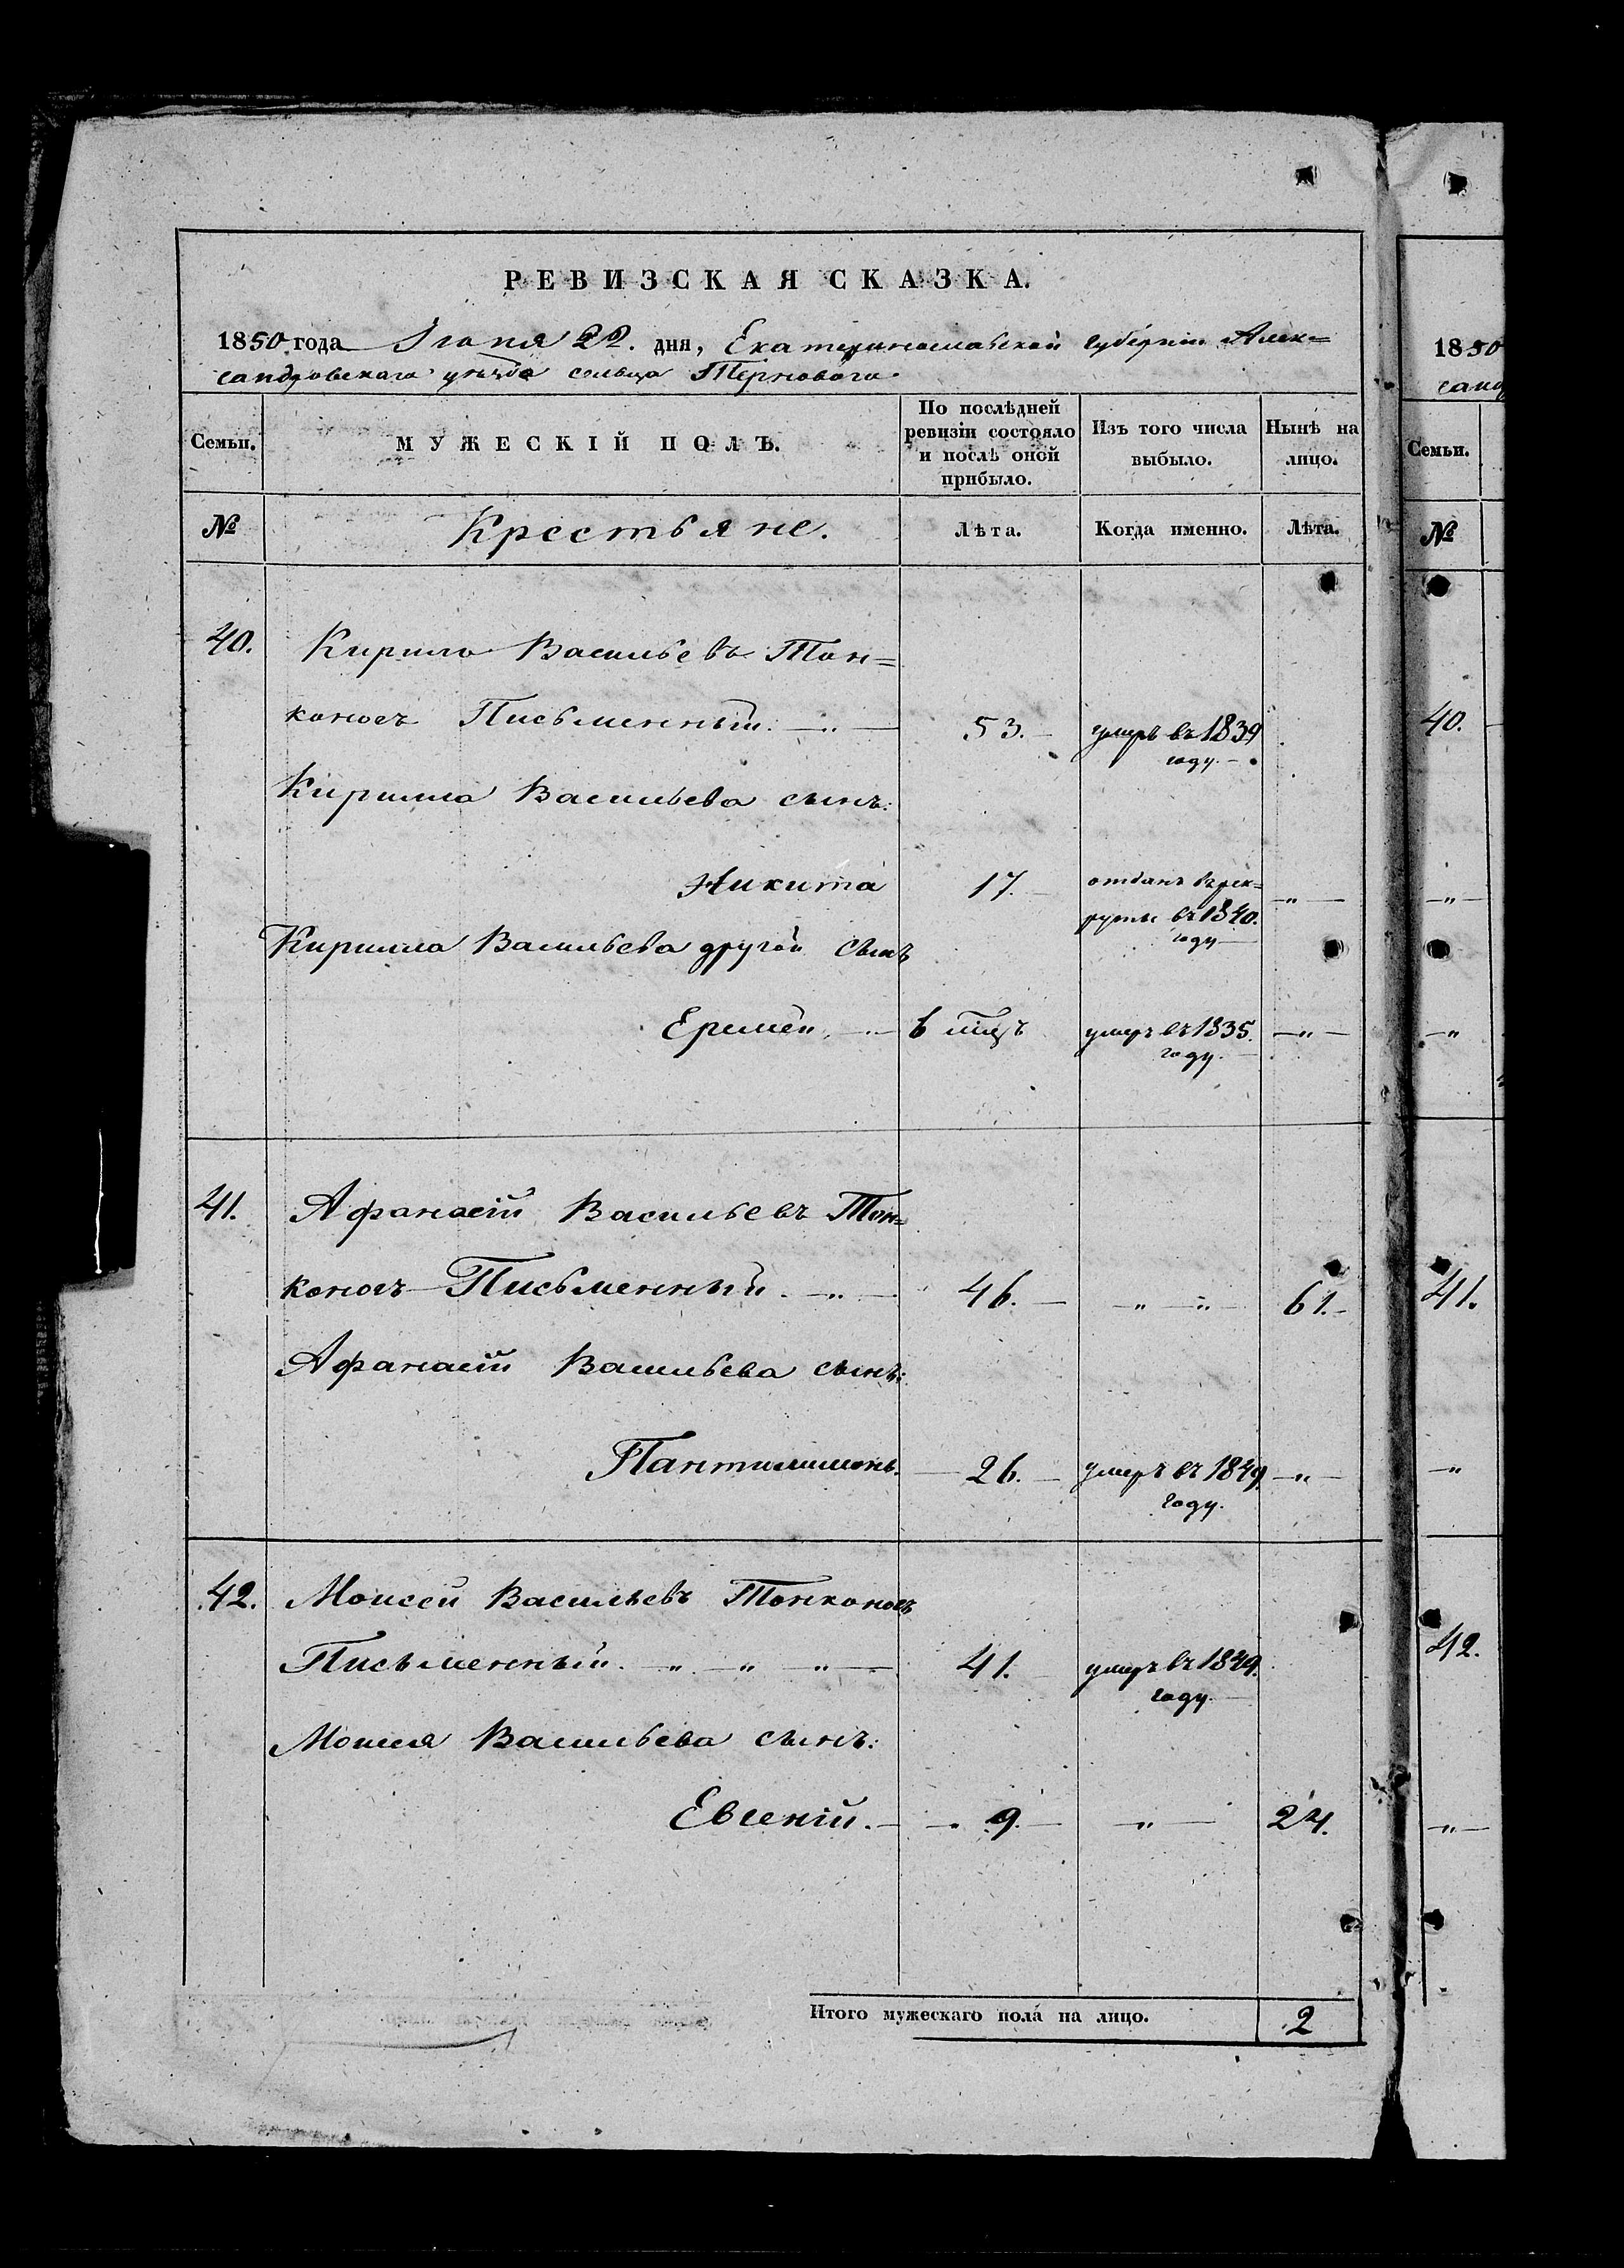 РЕВИЗСКАЯ СКАЗКА.
1850 года Іюня 22. дня, Екатеринославской губерніи Алек=
сандровскаго уѣзда сельца Терноваго
Семьи. МУЖЕСКІЙ ПОЛЪ. По послѣдней ревизіи состояло и послѣ оной прибыло. Изъ того числа выбыло. Нынѣ на лицо.
№ Крестьяне. Лѣта. Когда именно. Лѣта.
40. Кирило Васильевъ Тон=
коногъ Письменный. 53. умеръ въ 1839
году.
Кирилла Васильева сынъ:
Никита 17. отданъ въ рек=
руты въ 1840.
году
Кирилла Васильева другой сынъ
Еремей, 6 мѣц. умеръ въ 1835.
году.
41. Афанасій Васильевъ Тон=
коногъ Письменный. 46. 61.
Афанасій Васильева сынъ:
Пантилимонъ. 26. умеръ въ 1849
году.
42. Моисей Васильевъ Тонконогъ
Письменный. 41. умеръ въ 1849.
году
Моисея Васильева сынъ:
Евгеній. 9. 24.
Итого мужескаго пола на лицо. 2
1850
санд
Семьи.
№
40.
41.
42.